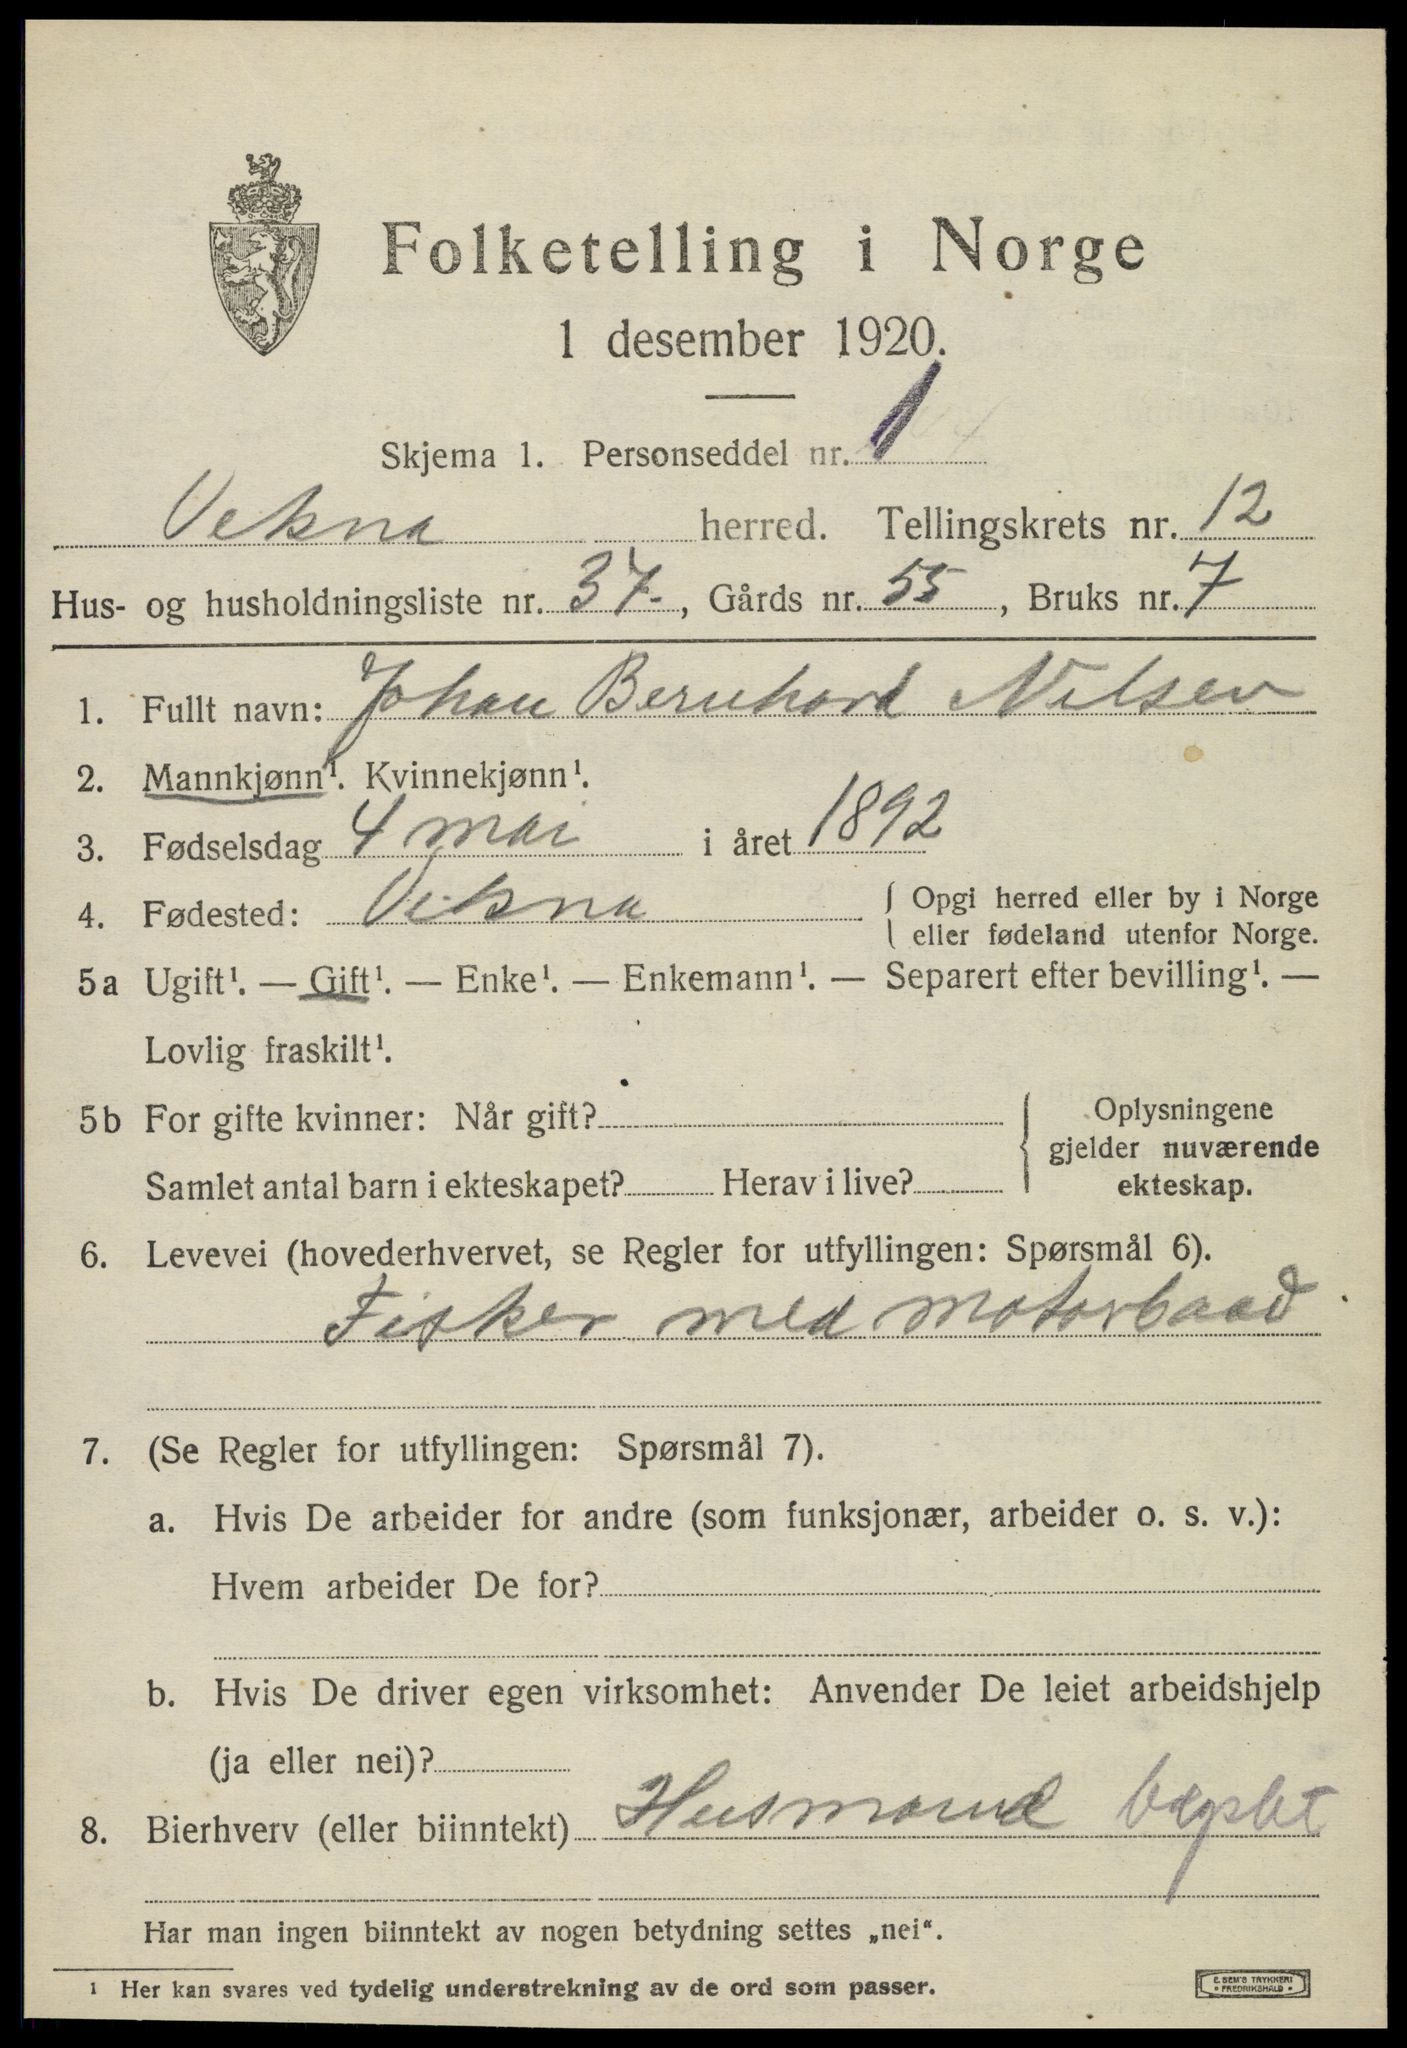 Folketelling i Norge
1 desember 1920.
Skjema 1. Personseddel nr. 1
Vekna herred. Tellingskrets nr. 12
Hus- og husholdningsliste nr. 37-, Gårds nr. 55, Bruks nr. 7
1. Fullt navn: Johan Bernhard Nilsen
2. Mannkjønn¹. Kvinnekjønn¹.
3. Fødselsdag 4 mai i året 1892
4. Fødested: Vikna { Opgi herred eller by i Norge
eller fødeland utenfor Norge.
5a Ugift¹. — Gift¹. — Enke¹. — Enkemann¹. — Separert efter bevilling¹. —
Lovlig fraskilt¹.
5b For gifte kvinner: Når gift? { Oplysningene
gjelder nuværende
Samlet antal barn i ekteskapet? Herav i live? ekteskap.
6. Levevei (hovederhvervet, se Regler for utfyllingen: Spørsmål 6).
Fisker med motorbaad
7. (Se Regler for utfyllingen: Spørsmål 7).
a. Hvis De arbeider for andre (som funksjonær, arbeider o. s. v.):
Hvem arbeider De for?
b. Hvis De driver egen virksomhet: Anvender De leiet arbeidshjelp
(ja eller nei)?
8. Bierhverv (eller biinntekt) Husmand
Har man ingen biinntekt av nogen betydning settes „nei“.
¹ Her kan svares ved tydelig understrekning av de ord som passer.
E. SEM'S TRYKKERI
FREDRIKSHALD